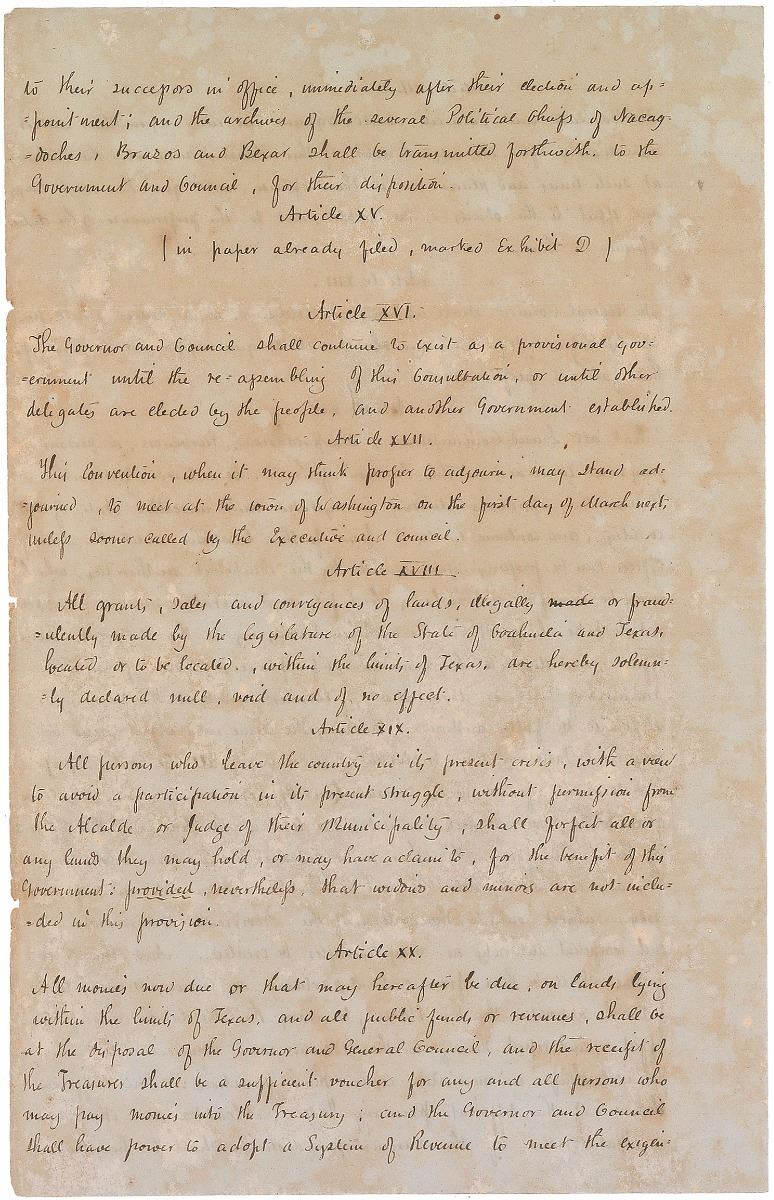 to their successors in office, immediately after their election and ap=
=pointment; and the archives of the several Political Chiefs of Nacag-
=doches, Brazos and Bexar shall be transmitted forthwith, to the
Government and Council, for their disposition.
Article XV.
( in paper already filed, marked Exhibit D )
Article XVI.
The Governor and Council shall continue to exist as a provisional gov=
=ernment until the re=assembling of this Consultation, or until other
delegates are elected by the people, and another Government established.
Article XVII.
This Convention, when it may think proper to adjourn, may stand ad=
=journed, to meet at the town of Washington on the first day of March next,
unless sooner called by the Executive and council.
Article XVIII.
All grants, sales and conveyances of lands, illegally made or fraud=
=ulently made by the legislature of the State of Coahuila and Texas,
located or to be located, within the limits of Texas, are hereby solemn=
=ly declared null, void and of no effect.
Article XIX.
All persons who leave the country in its present crisis, with a view
to avoid a participation in its present struggle, without permission from
the Alcalde or Judge of their Municipality, shall forfeit all or
any lands they may hold, or may have a claim to, for the benefit of this
Government: provided, nevertheless, that widows and minors are not inclu=
=ded in this provision.
Article XX.
All monies now due or that may hereafter be due, on lands lying
within the limits of Texas, and all public funds or revenues, shall be
at the disposal of the Governor and General Council, and the receipt of
the Treasurer shall be a sufficient voucher for any and all persons who
may pay monies into the Treasury; and the Governor and Council
shall have power to adopt a System of Revenue to meet the exigen=